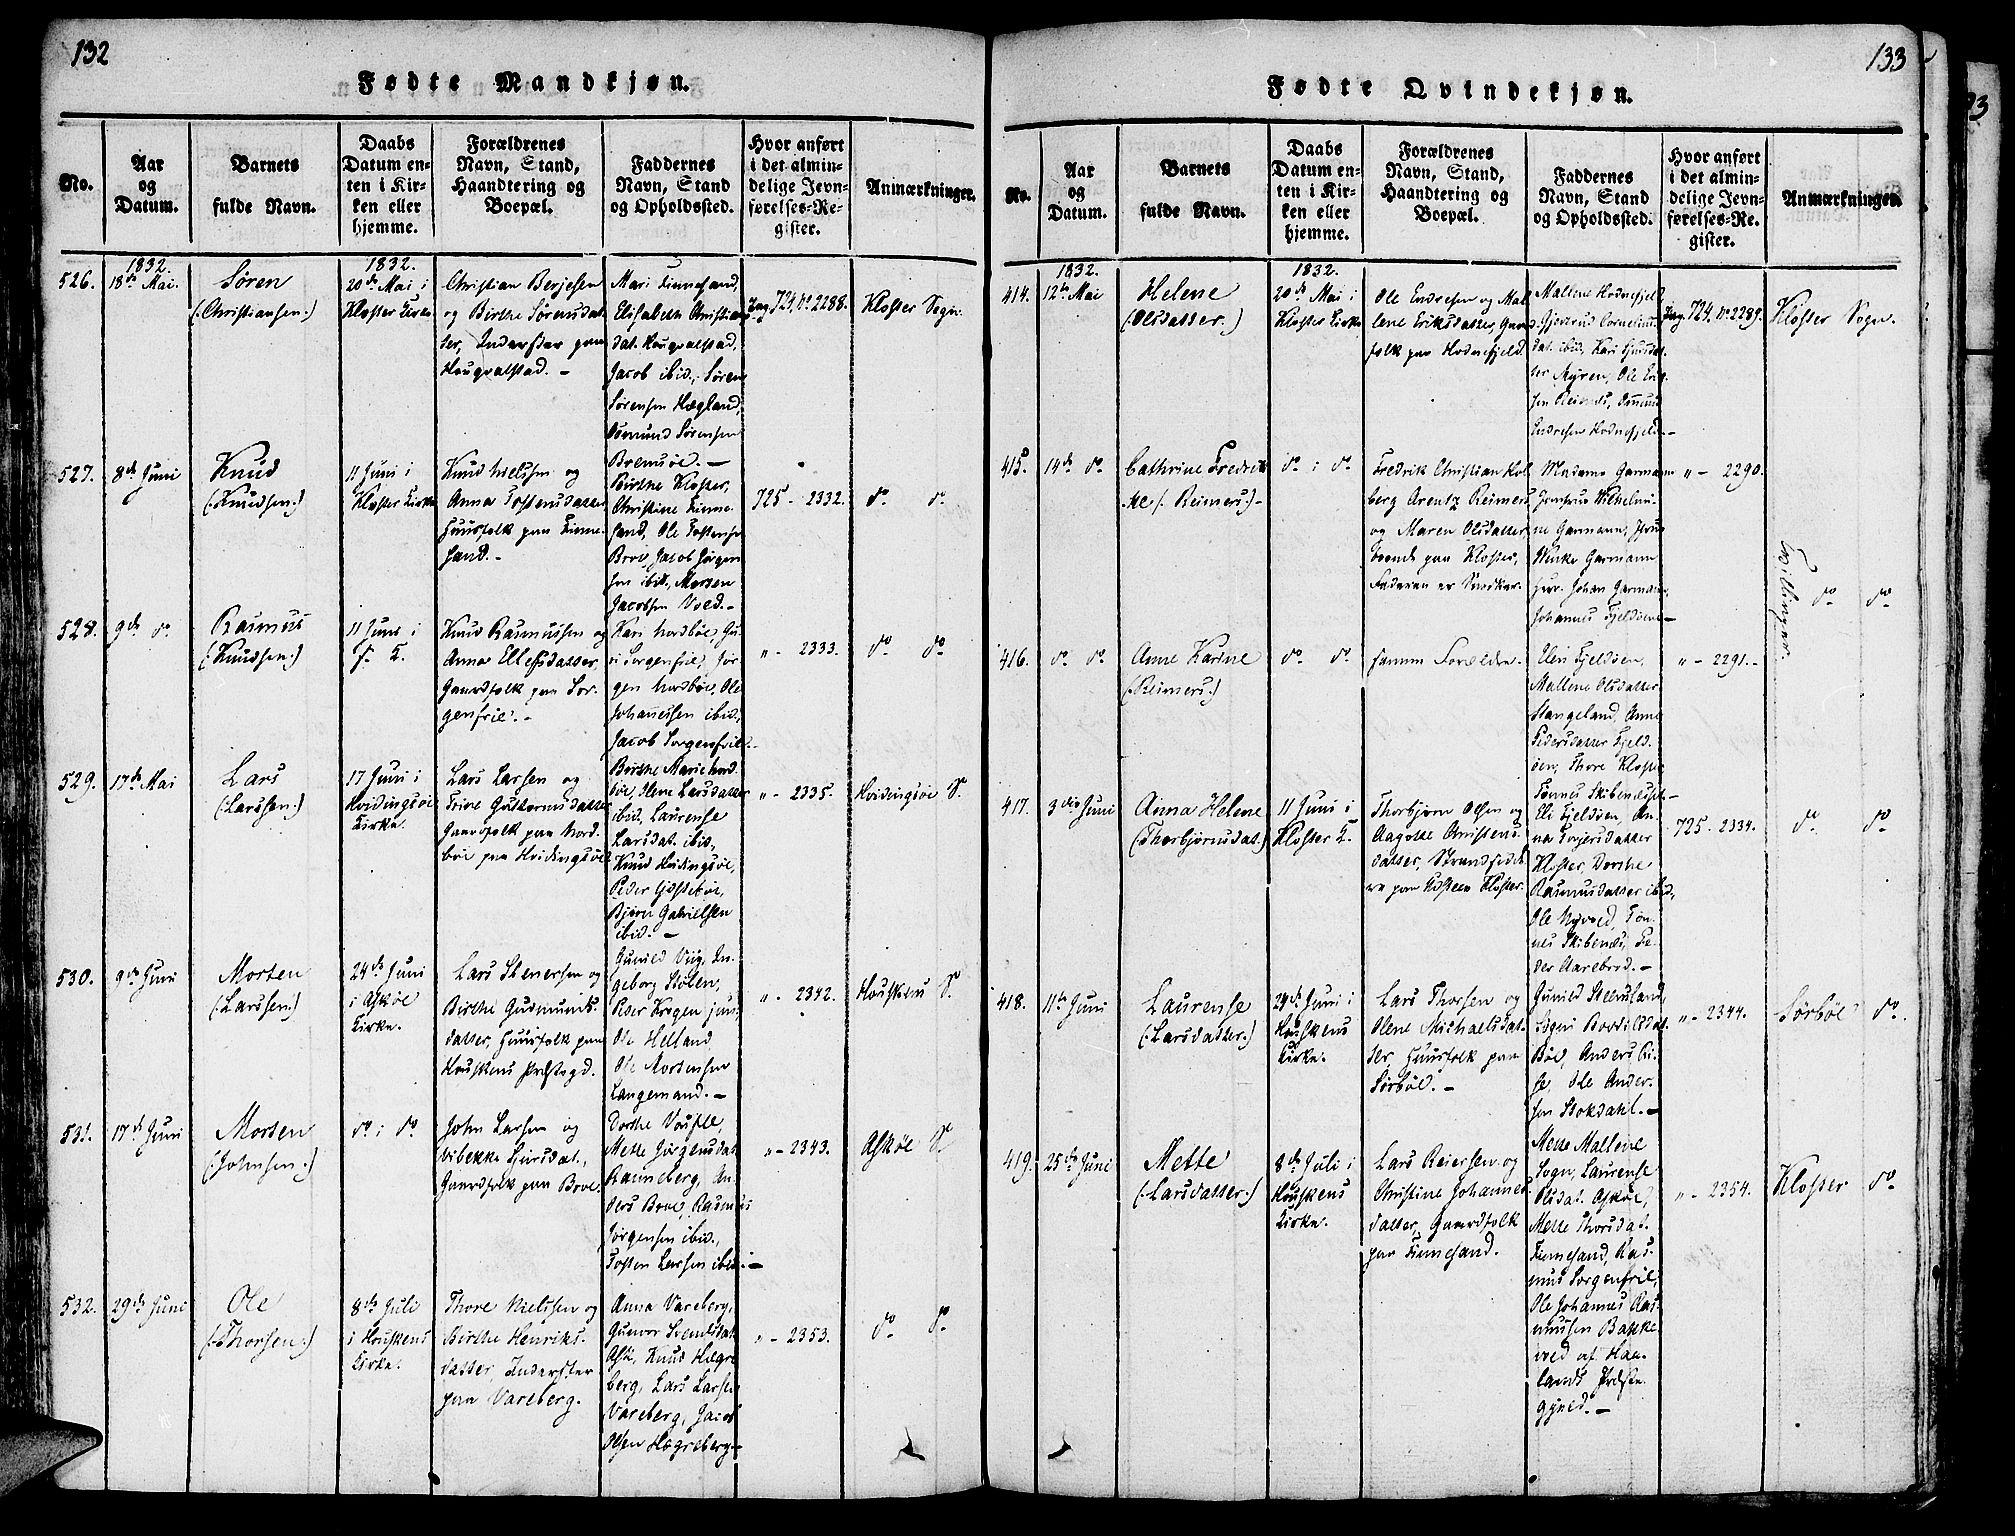 132
Fødte Mandkjøn.
No.
Aar
og
Datum.
Barnets
fulde Navn.
Daabs
Datum en-
ten i Kir-
ken eller
hjemme.
Forældrenes
Navn, Stand,
Haandtering og
Boepæl.
Faddernes
Navn, Stand
og Opholdssted.
Hvor anført
i det almin-
delige Jevn-
førelses-Re-
gister.
Anmærkninger.
526.
1832.
18de Mai.
Søren
(:Christiansen:)
1832.
20de Mai i
Kloster Kirke
Christian Berjesen
og Birthe Sørensdat-
ter, Inderster paa
Haugvalstad. -
Mari Finnesand,
Elisabeth Christians-
dat. Haugvalstad,
Jacob ibid., Søren
Sørensen Hægland,
Osmund Sørensen
Bremsøe. -
Pag. 724, No 2288.
Kloster Sogn.
527.
8de Juni
Knud
(:Knudsen:)
11 Juni i
Kloster Kirke
Knud Nielsen og
Anna Tostensdatter
Huusfolk paa Finne-
sand. -
Birthe Kloster,
Christine Finne-
sand, Ole Tostensen
Broe, Jacob Jørgen-
sen ibid., Morten
Jacobsen Vold. -
725 - 2332.
do do
528.
9de do
Rasmus
(:Knudsen:)
11 Juni i
K.
Knud Rasmussen og
Anna Ellefsdatter,
Gaardfolk paa Sor-
genfrie. -
Kari Nordbøe, Gu-
ri Sorgenfrie, Jør-
gen Nordbøe, Ole
Johannesen ibid.,
Jacob Sorgenfrie. -
" - 2333.
do do
529.
17de Mai
Lars
(:Larsen:)
17 Juni i
Hvidingsøe
Kirke.
Lars Larsen og
Trine Guttormsdatter
Gaardfolk paa Nord-
bøe paa Hvidingsøe
Birthe Marie Nord-
bøe, Olene Larsdatter
ibid., Laurense
Larsdat. ibid.,
Knud Hvidingsøe,
Peder Giøstebøe,
Bjørn Gabrielsen
ibid. -
" - 2335.
Hvidingsøe S.
530.
9de Juni
Morten
(:Larsen:)
24de Juni
i Askøe
Kirke.
Lars Stenersen og
Birthe Gudmunds-
datter, Huusfolk paa
Houskens Præstegd.
Gunild Viig, In-
geborg Stølen,
Peder Krogen jun.,
Ole Helland,
Ole Mortensen
Langemand. -
" - 2342.
Houskens S.
531.
17de Juni
Morten
(:Johnsen:)
do i do
John Larsen og
Vibekke Siursdat.,
Gaardfolk paa Broe.
Dorthe Voufle,
Mette Jørgensdat.
Ranneberg, An-
ders Broe, Rasmus
Jørgensen ibid.,
Tosten Larsen ibid. -
" - 2343.
Askøe S.
532.
29de Juni
Ole
(:Thorsen:)
8de Juli
i Houskens
Kirke.
Thore Nielsen og
Birthe Henriks-
datter, Inderster
paa Vareberg.
Anna Vareberg,
Gunvor Svendsdat.
Aske, Knud Hægre-
berg, Lars Larsen
Vareberg, Jacob
Olsen Hægreberg. -
" - 2353.
do do
133
Fødte Qvindekjøn.
No.
Aar
og
Datum.
Barnets
fulde Navn.
Daabs
Datum en-
ten i Kir-
ken eller
hjemme.
Forældrenes
Navn, Stand,
Haandtering og
Boepæl.
Faddernes
Navn, Stand
og Opholdssted.
Hvor anført
i det almin-
delige Jevn-
førelses-Re-
gister.
Anmærkninger.
414.
1832.
12te Mai
Helene
(:Olsdatter:)
1832.
20de Mai i
Kloster Kirke
Ole Endresen og Mal-
lene Eriksdatter, Gaard-
folk paa Hodnefjeld.
Mallene Hodnefjeld
Gjertrud Cornelius-
dat. ibid., Kari Siursdat-
ter Myren, Ole Erik-
sen Reines, Osmund
Endresen Hodnefjeld. -
Pag. 724, No 2289.
Kloster Sogn.
415.
14de do
Cathrine Fredrik-
ke (:Reimers:) -
do i do
Fredrik Christian Hol-
berg Arentz Reimers
og Maren Olsdatter,
boende paa Kloster,
Faderen er Snedker.
Madame Garmann
Jomfrue Wilhelmi-
ne Garmann, Jfrue
Wenke Garmann
Herr. Johan Garmann,
Johannes Fjeldøen. -
" - 2290.
Tvillinger.
do do
416.
do do
Anne Karine
(:Reimers:)
do do
samme Forældre.
Eleri Fjeldøen,
Mallene Olsdatter
Stangeland, Anne
Pedersdatter Fjeld-
øen, Thore Kloster
Tønnes Skibenæs. -
" - 2291. -
417.
3die Juni
Anna Helene
(:Thorbjørnsdat.:)
11 Juni i
Kloster K.
Thorbjørn Olsen og
Aagotte Christens-
datter, Strandsidde-
re paa Østeen Kloster.
Eli Fjeldøen, An-
na Torgersdatter
Kloster, Dorthe
Rasmusdatter ibid.,
Ole Nyvold, Tøn-
nes Skibenæs, Pe-
der Aarebrod. -
725. 2334.
do do
418.
11te Juni
Laurense
(:Larsdatter:)
24de Juni i
Houskens
Kirke.
Lars Thorsen og
Olene Michaelsdat-
ter, Huusfolk paa
Sørbøe. -
Gunild Steensland,
Sigri Bordilsdat.
Bøe, Anders Ri-
se, Ole Ander-
sen Stokdahl. -
" - 2344.
Sørbøe do.
419.
25de Juni
Mette
(:Larsdatter:)
8de Juli i
Houskens
Kirke.
Lars Reiersen og
Christine Johannes-
datter, Gaardfolk
paa Finnesand.
Mette Mallene
Sogn, Laurense
Olsdat. Askøe,
Mette Thorsdat.
Finnesand, Ras-
mus Sorgenfrie,
Ole Johannes Ras-
mussen Bakke-
vold af Haa-
lands Præste-
gjeld. -
" - 2354.
Kloster do